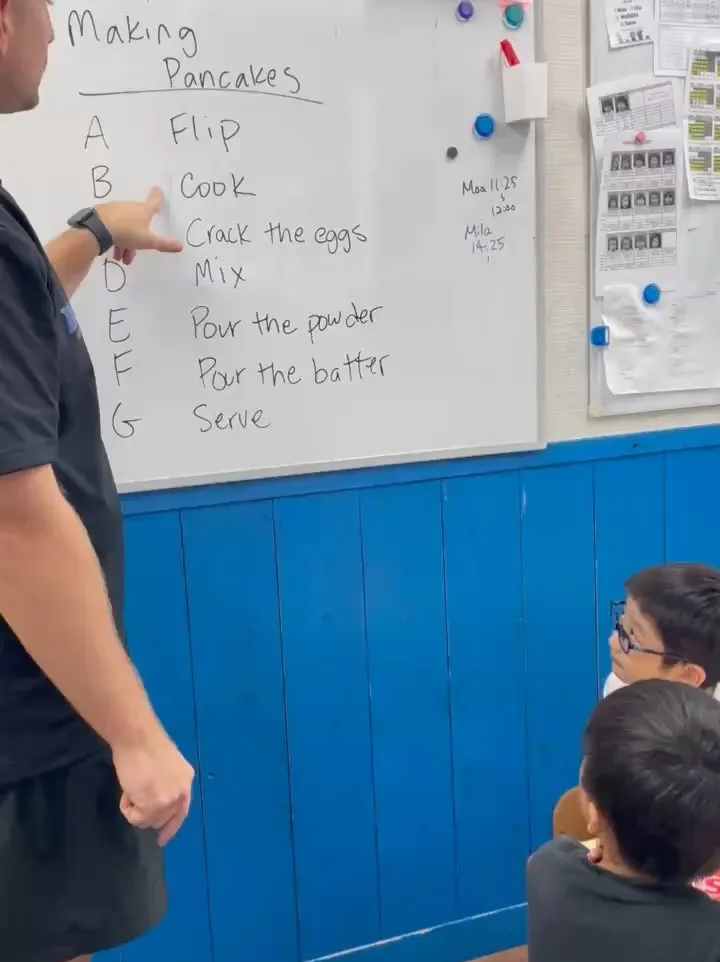 Making
Pancakes
A Flip
B Cook
Crack the eggs
D Mix
E Pour the powder
F Pour the batter
G Serve
Moa 11:25
12:00
Mila
14:25